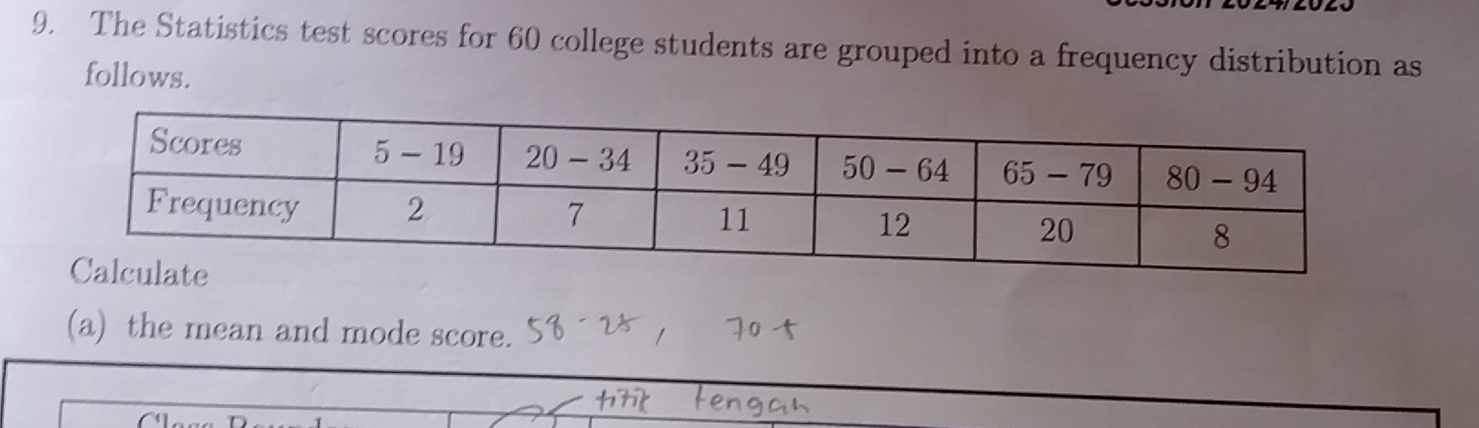 Session 2024/2025
9. The Statistics test scores for 60 college students are grouped into a frequency distribution as
follows.
Scores 5 – 19 20 – 34 35 – 49 50 – 64 65 – 79 80 – 94
Frequency 2 7 11 12 20 8
Calculate
(a) the mean and mode score. 58.25, 70.5
titik tengah
Class